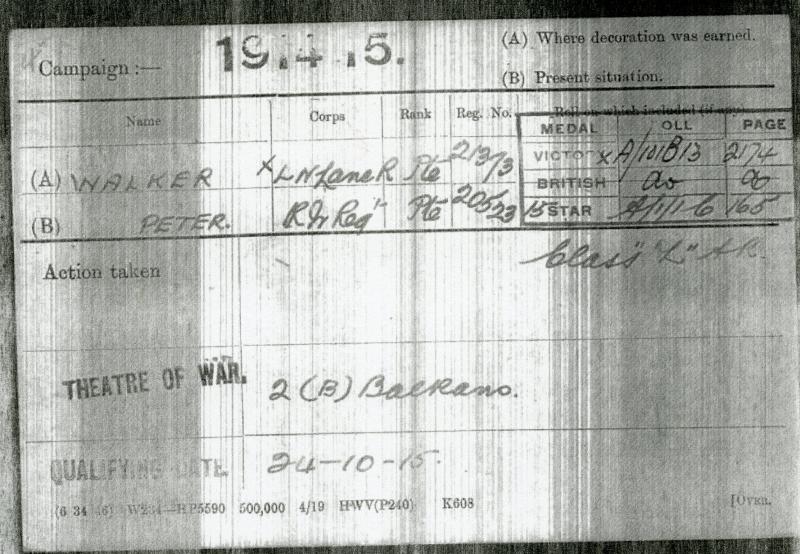 Campaign :— 1914 15. (A) Where decoration was earned.
(B) Present situation.
Name Corps Rank Reg. No. Roll on which included (if any)
MEDAL OLL PAGE
(A) WALKER X L N Lanc R Pte 21373 VICTO X A/101B13 2174
BRITISH do do
(B) PETER. R Ir Regt Pte 20523 15 STAR A/1/1 6 165
Action taken Class "Z" AR.
THEATRE OF WAR. 2 (B) Balkans.
QUALIFYING DATE 24-10-15.
(6 34 46) W234—HP5590 500,000 4/19 HWV(P240) K608 [OVER.